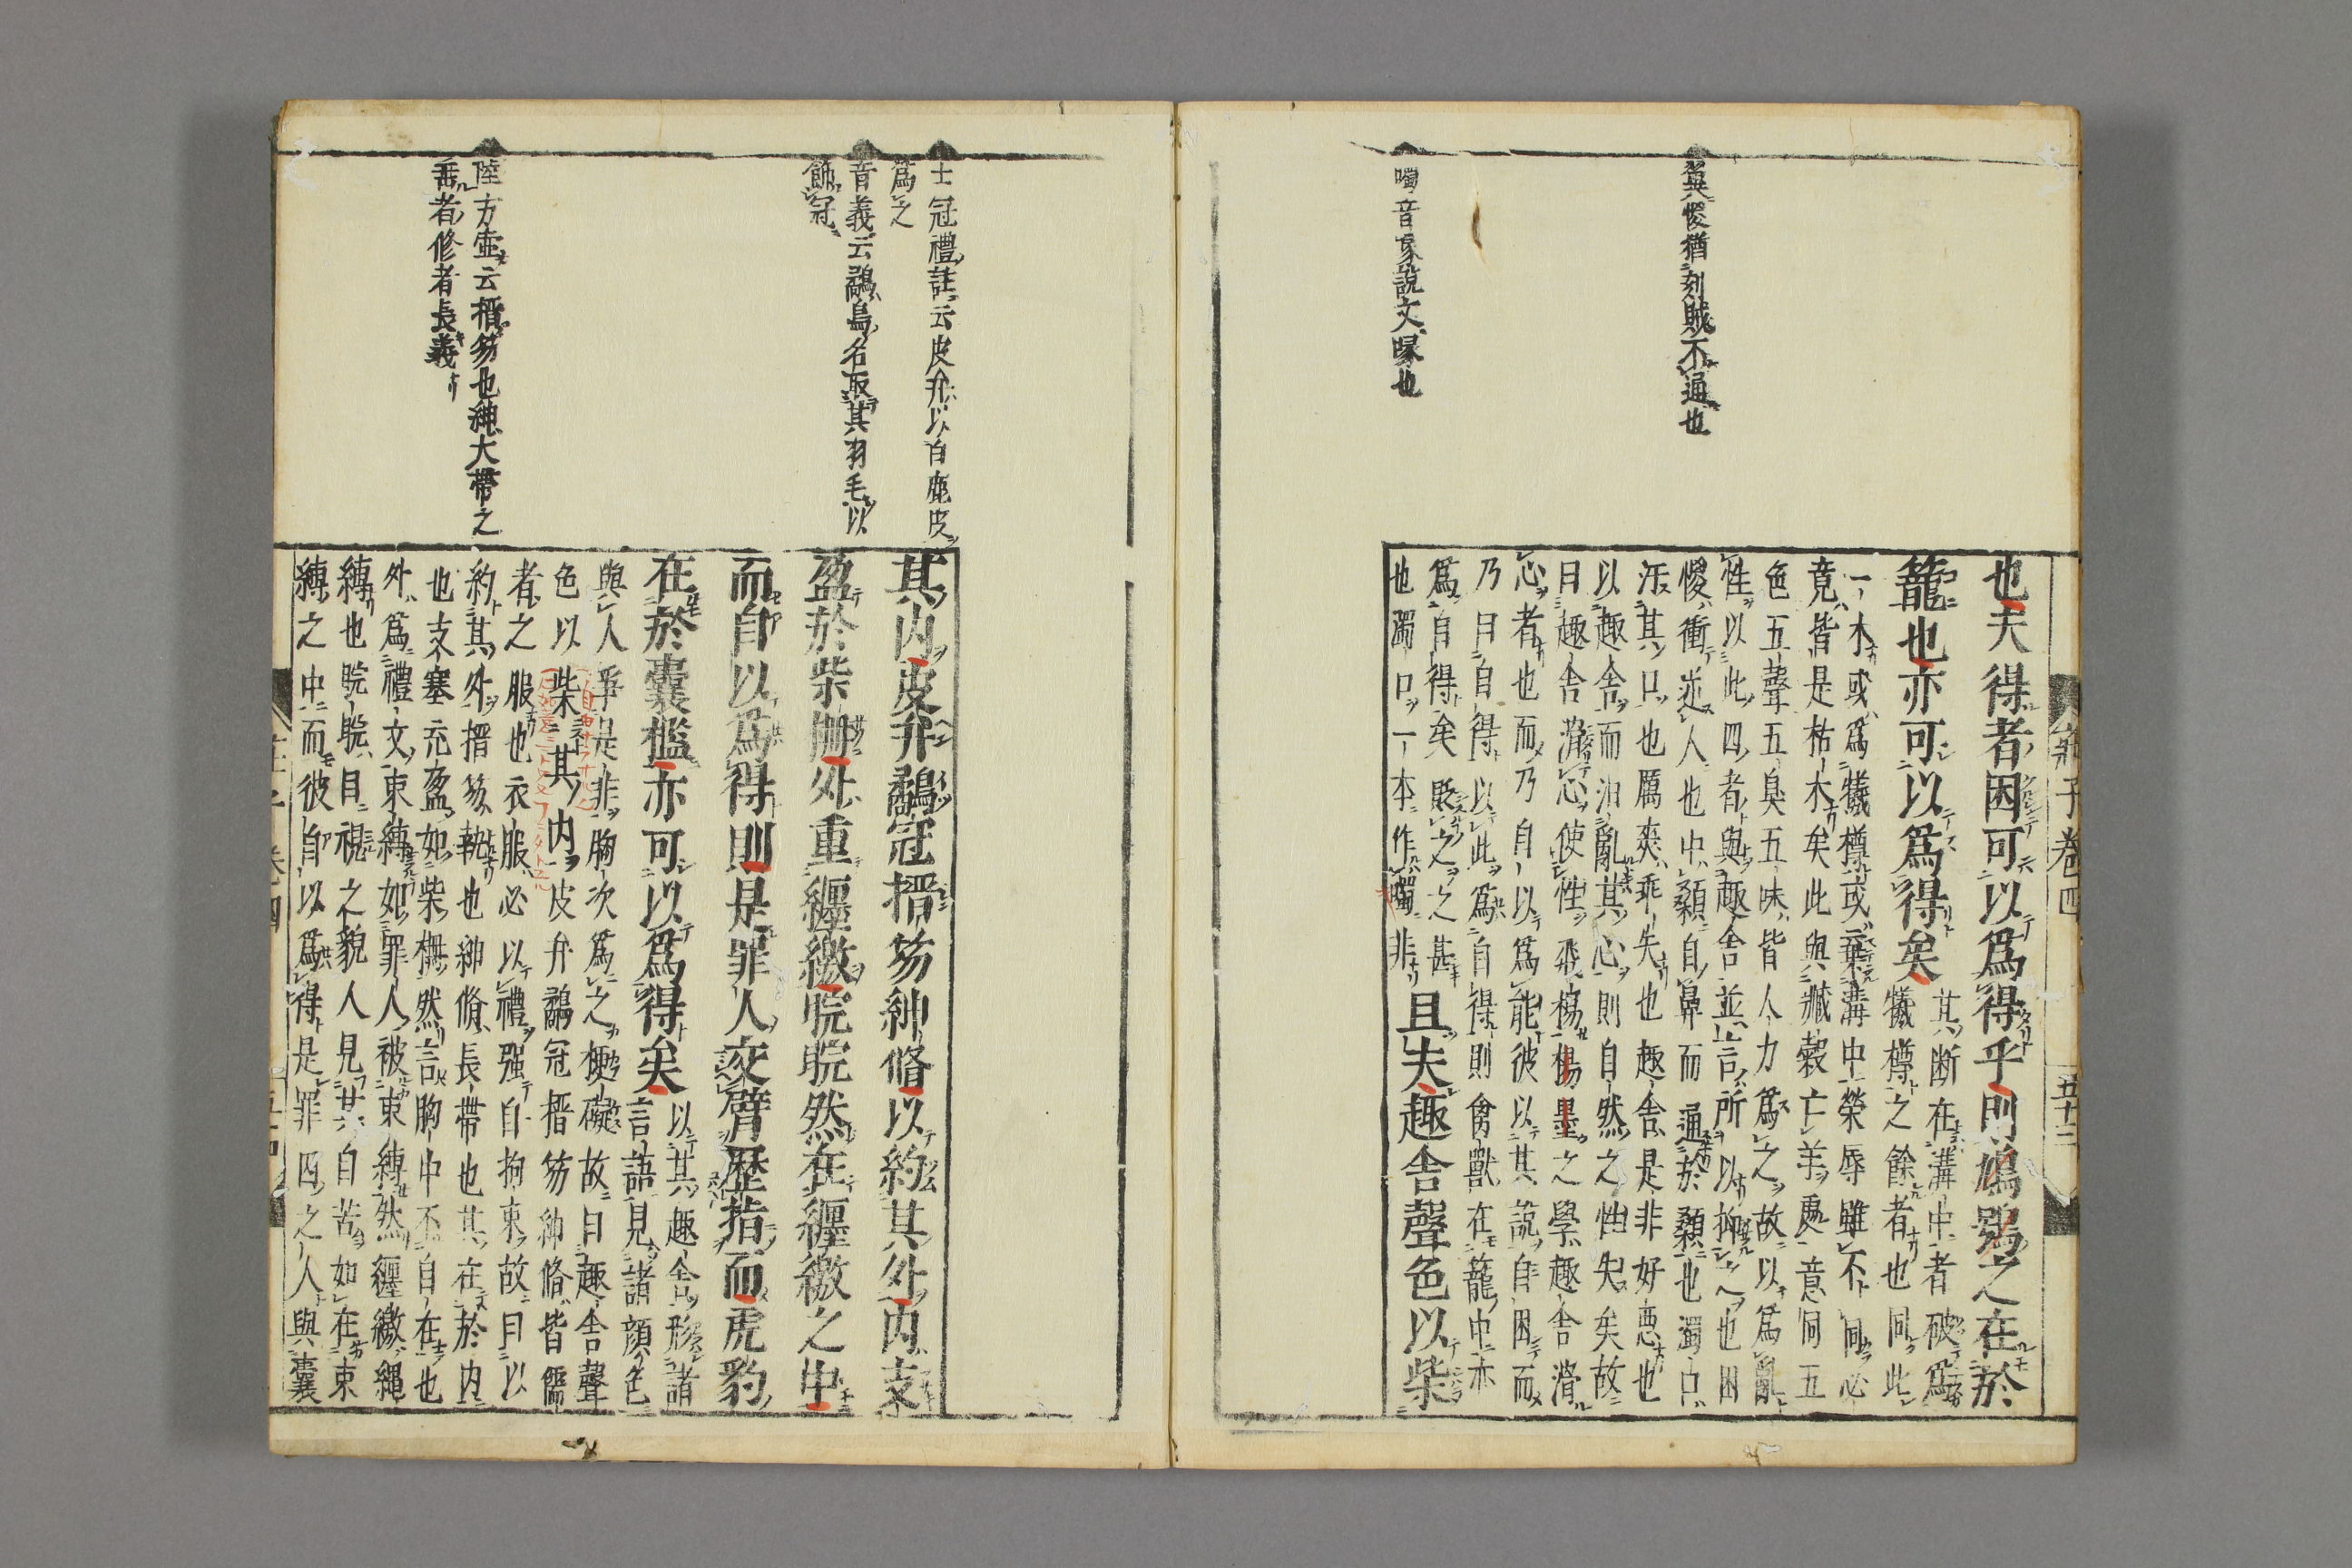 莊子卷四
五十三
㚖惾猶刻賊不通也
噣音豕說文喙也
也夫得者困可以爲得乎則鳩鴞之在於
籠也亦可以爲得矣其斷在溝中者破爲
犧樽之餘者也同此
一木或爲犧樽或棄溝中榮辱雖不同必
竟皆是枯木矣此與臧穀亡羊處一意同五
色五聲五臭五味皆人力爲之故以爲亂
性以此四者與趣舍並言所以抑之也困
惾衝逆人也中顙自鼻而通於顙也濁口
汚其口也厲爽乖失也趣舍是非好惡也
以趣舍而汨亂其心則自然之性失矣故
曰趣舍滑心使性飛揚楊墨之學趣舍滑
心者也而乃自以爲能彼以其說自困而
乃曰自得以此爲自得則禽獸在籠中亦
爲自得矣貶之之甚
也濁口一本作噣非
且夫趣舍聲色以柴
士冠禮註云皮弁以白鹿皮
爲之
音義云鷸鳥名取其羽毛以
飾冠
陸方壺云搢笏也紳大帶之
垂者修者長義
其內皮弁鷸冠搢笏紳脩以約其外內支
盈於柴柵外重纆繳睆睆然在纆繳之中
而自以爲得則是罪人交臂歷指而虎豹
在於囊檻亦可以爲得矣以其趣舍形諸
言語見諸顏色
與人爭是非胸次爲之梗礙故曰趣舍聲
色以柴其內皮弁鷸冠搢笏紳脩皆儒
者之服也衣服必以禮强自拘束故曰以
約其外搢笏執也紳脩長帶也其在於內
也支塞充盈如柴柵然言胸中不自在也
外爲禮文束縛如罪人被束縛然纆繳繩
縛也睆睆目視之貌人見其自苦如在束
縛之中而彼自以爲得是罪囚之人與囊